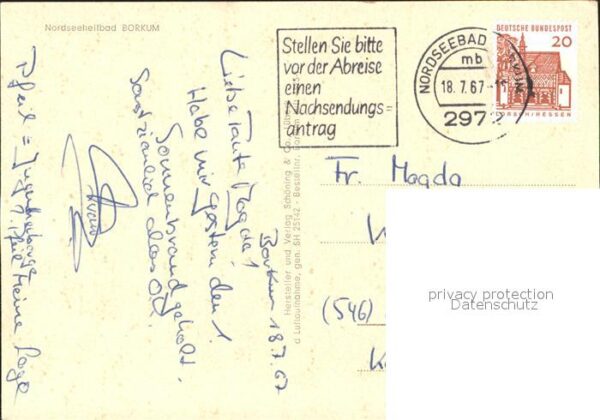 Nordseeheilbad BORKUM
Stellen Sie bitte
vor der Abreise
einen
Nachsendungs=
antrag
NORDSEEBAD
mb
18.7.67
297
DEUTSCHE BUNDESPOST
20
LORSCH/HESSEN
Borkum 18.7.67
Liebe Tante Magda!
Habe mir gestern den 1.
Sonnenbrand geholt.
Sonst ziemlich
Pfeil = Jugendherberge
1. Pfeil Meine Lage
Hersteller und Verlag Schöning & Co.
Luftaufnahme, gen. SH 25142 - Bestellnr.
Fr. Magda
(546)
privacy protection
Datenschutz